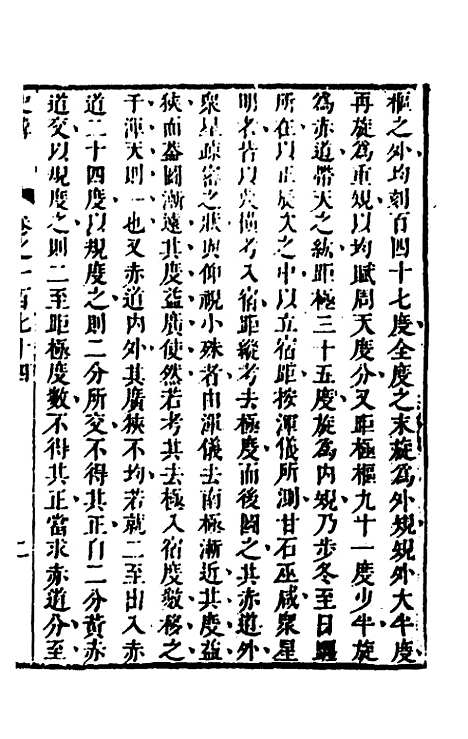 樞之外均刻百四十七度全度之末旋爲外規規外大半度
再旋爲重規以均賦周天度分又距極樞九十一度少半旋
爲赤道帶天之紘距極三十五度旋爲內規乃步冬至日躔
所在以正辰次之中以立宿距按渾儀所測甘石巫咸衆星
明者皆以筴橫考入宿距縱考去極度而後圖之其赤道外
衆星疎密之狀與仰視小殊者由渾儀去南極漸近其度益
狹而蓋圖漸遠其度益廣使然若考其去極入宿度數移之
于渾天則一也又赤道內外其廣狹不均若就二至出入赤
道二十四度以規度之則二分所交不得其正自二分黃赤
道交以規度之則二至距極度數不得其正當求赤道分至
卷之一百七十四